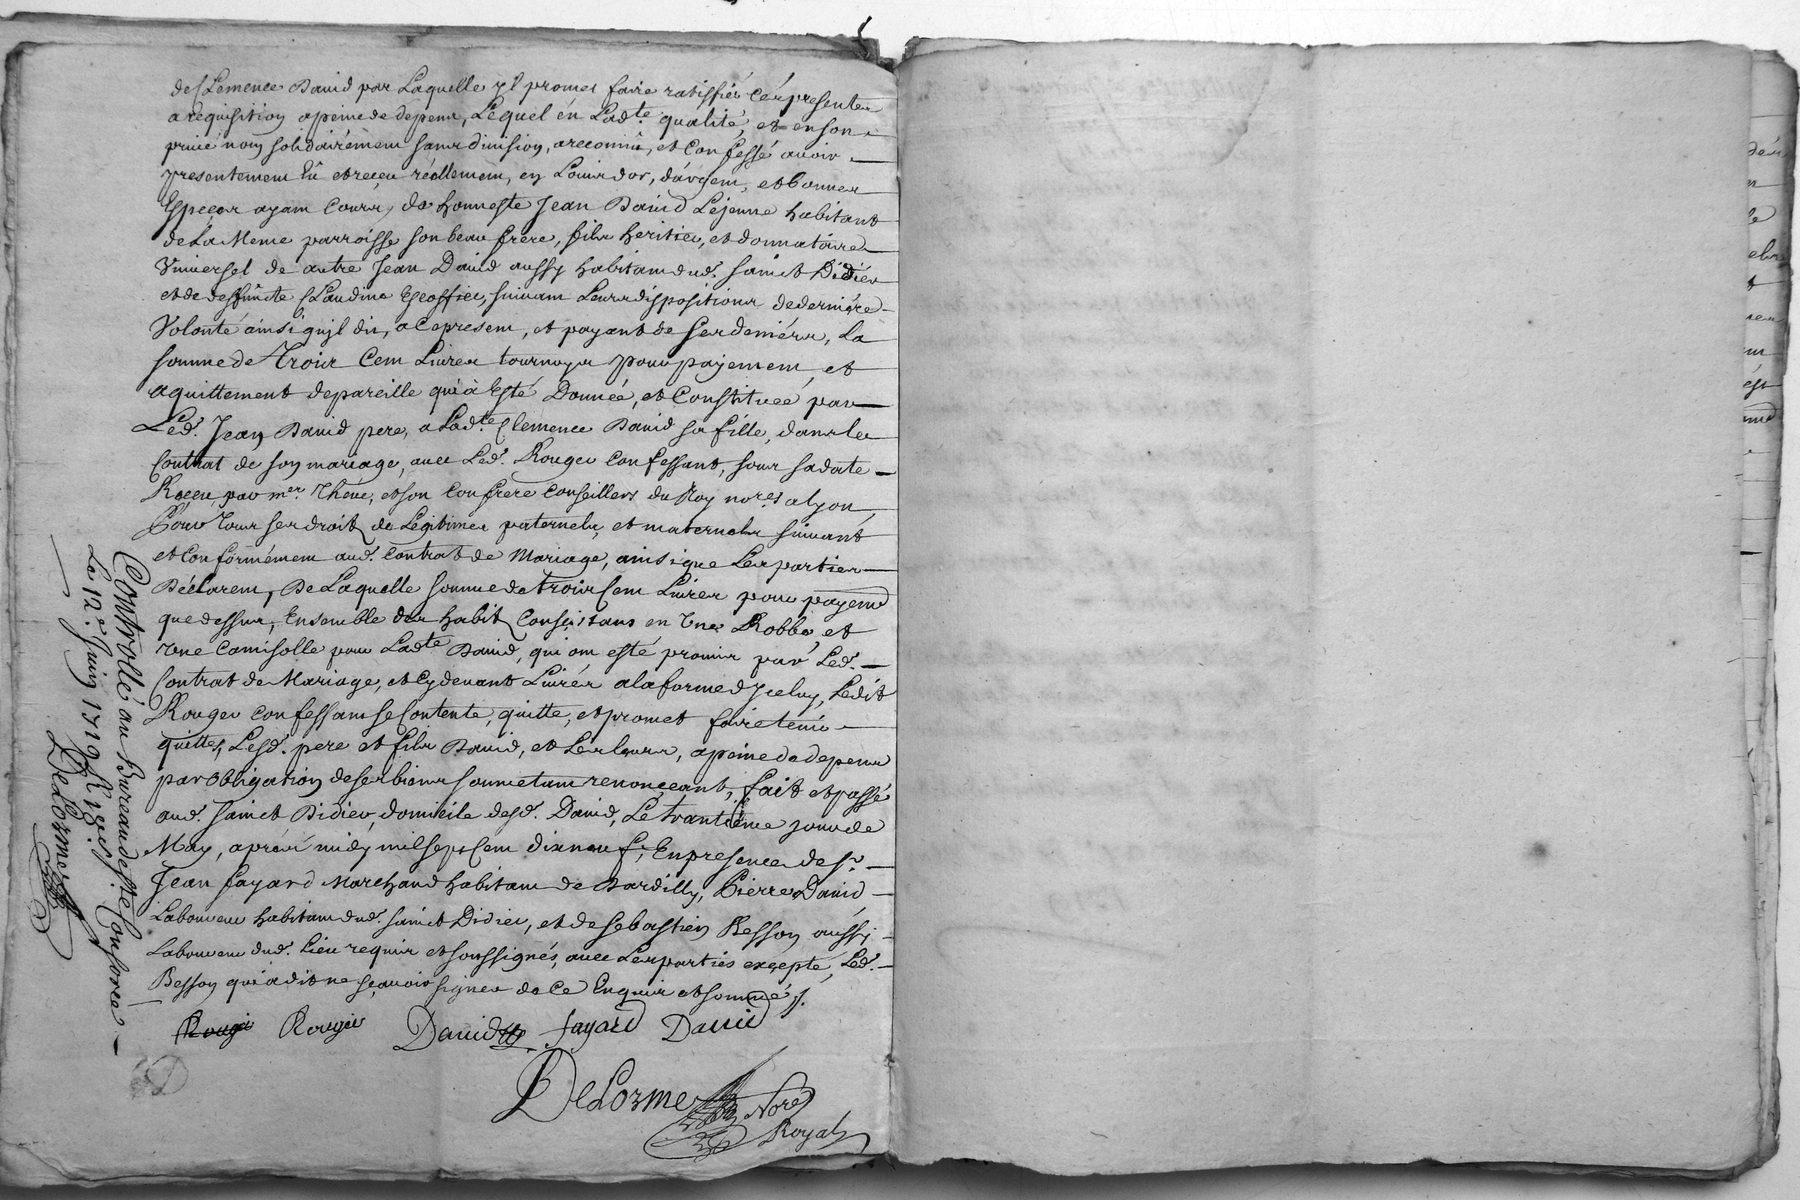 de Clemence David par Laquelle yl promet faire ratiffier cés presentes
a requisition a peine de depens, Lequel én Lad.te qualité, et en son
privé nom solidairément sans division, a reconnû, et Confessé avoir
presentement êu et reçeu réellement, en Louis dor, dárgent, et bonnes
Especes ayant Cours, de honneste Jean David Lejeune habitant
de La Meme parroisse son beau frere, fils heritier, et donnataire
Universel de autre Jean David aussy habitant dud. sainct Didier
et de deffuncte Claudine Geoffier, suivant Leurs dispositions de derniére
Volonté ainsi qu'jl dit, a ce present, et payant de ses deniérs, La
somme de Trois Cent Livres tournoys pour payement, et
aquittement de pareille qui à Esté Donnée, et Constituée par
Led. Jean David pere, a Lad.te Clemence David sa fille, dans le
Contrat de son mariage, avec Led. Rougier Confessant, sous sa date
Reçeu par m.er Théve, et son Confrere Conseillers du Roy no.res a lyon
Pour Tous ses droits de Légitimes paternels, et maternels suivant
et Conformément aud. Contrat de Mariage, ainsi que Les parties
Déclarent, De Laquelle somme de trois Cent Livres pour payem.t
que dessus, Ensemble des habits Consistans en Une Robbe, et
Une Camisolle pour Lad.te David, qui ont esté promis par Led.
Contrat de Mariage, et Cy devant Livrés a la forme d'Jceluy, Ledit
Rougier Confessant se Contente, quitte, et promet faire tenir
quittes, Lesd. pere et fils David, et Les leurs, a peine de depens
par obligation de ses biens soumettant renonçeant, fait et passé
aud. Sainct Didier, domicile desd. David, Le trantiéme jour de
May, aprés midy mil sept Cent dix neuf, En presence de s.r
Jean fayard Marchand habitant de Dardilly, Pierre David
Laboureur habitant dud. sainct Didier, et de Sebastien Besson aussy
Laboureur dud. Lieu requis et soussignés, avec Les parties excepté, Led.
Besson qui a dit ne sçavoir signer de Ce Enquis et sommé /.
Rougié Rougié David fayard David
DeLorme Nore
Royal
Controllé au Bureau de ste Consorce
Le 12.e Juin 1719
DeLorme